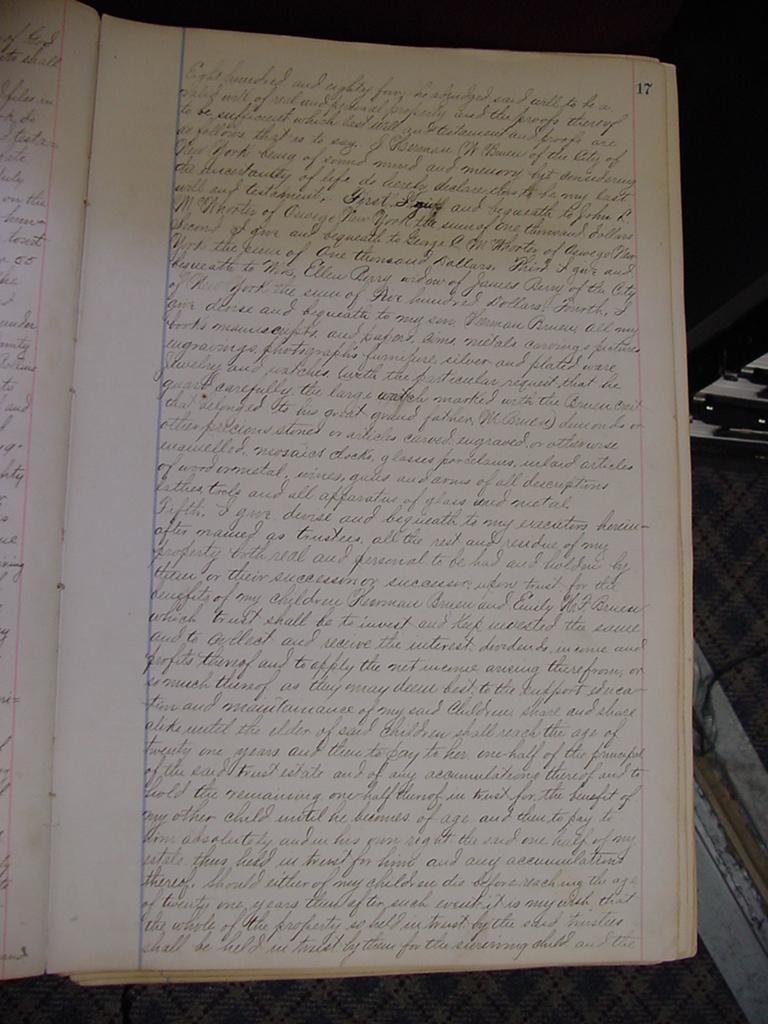 17
Eight hundred and eighty four, he adjudged said will to be a
valid will of real and personal property and the proofs thereof
to be sufficient which last will and testament and proofs are
as follows that is to say. I Herman W Bruen of the City of
New York being of sound mind and memory but considering
the uncertainty of life do hereby declare this to be my last
will and testament. First. I give and bequeath to John R.
McWhorter of Oswego New York the sum of One thousand Dollars
Second I give and bequeath to George C. McWhorter of Oswego New
York the sum of One thousand Dollars. Third I give and
bequeath to Mrs. Ellen Perry widow of James Perry of the City
of New York the sum of Five hundred Dollars. Fourth, I
give devise and bequeath to my son Herman Bruen all my
books manuscripts, and papers, arms, metals carvings pictures
engravings, photographs furniture, silver and plated ware
jewelry and watches (with the particular request that he
guard carefully the large watch marked with the Bruen crest
that belonged to his great grand father, M Bruen) dimonds or
other precious stones or articles carved, engraved, or otherwise
enamelled, mosaics clocks, glasses porcelains, inlaid articles
of wood or metal, wines, guns and arms of all descriptions
lathes, tools and all apparatus of glass and metal.
Fifth. I give devise and bequeath to my executors herein-
after named as trustees, all the rest and residue of my
property both real and personal to be had and holden by
them or their successor or successors upon trust for the
benefits of my children Herman Bruen and Emily Bruen
which trust shall be to invest and keep invested the same
and to collect and receive the interest, dividends, income and
profits thereof and to apply the net income arising therefrom, or
so much thereof as they may deem best, to the support educa-
tion and maintainance of my said Children, share and share
alike until the elder of said children shall reach the age of
twenty one years and then to pay to her one-half of the principal
of the said trust estate and of any accumulations thereof and to
hold the remaining one-half thereof in trust for the benefit of
my other child until he becomes of age and then to pay to
him absolutely and in his own right the said one half of my
estate thus held in trust for him and any accumulations
thereof. Should either of my children die before reaching the age
of twenty one years then after such event it is my wish that
the whole of the property so held in trust by the said trustees
shall be held in trust by them for the surviving child and the